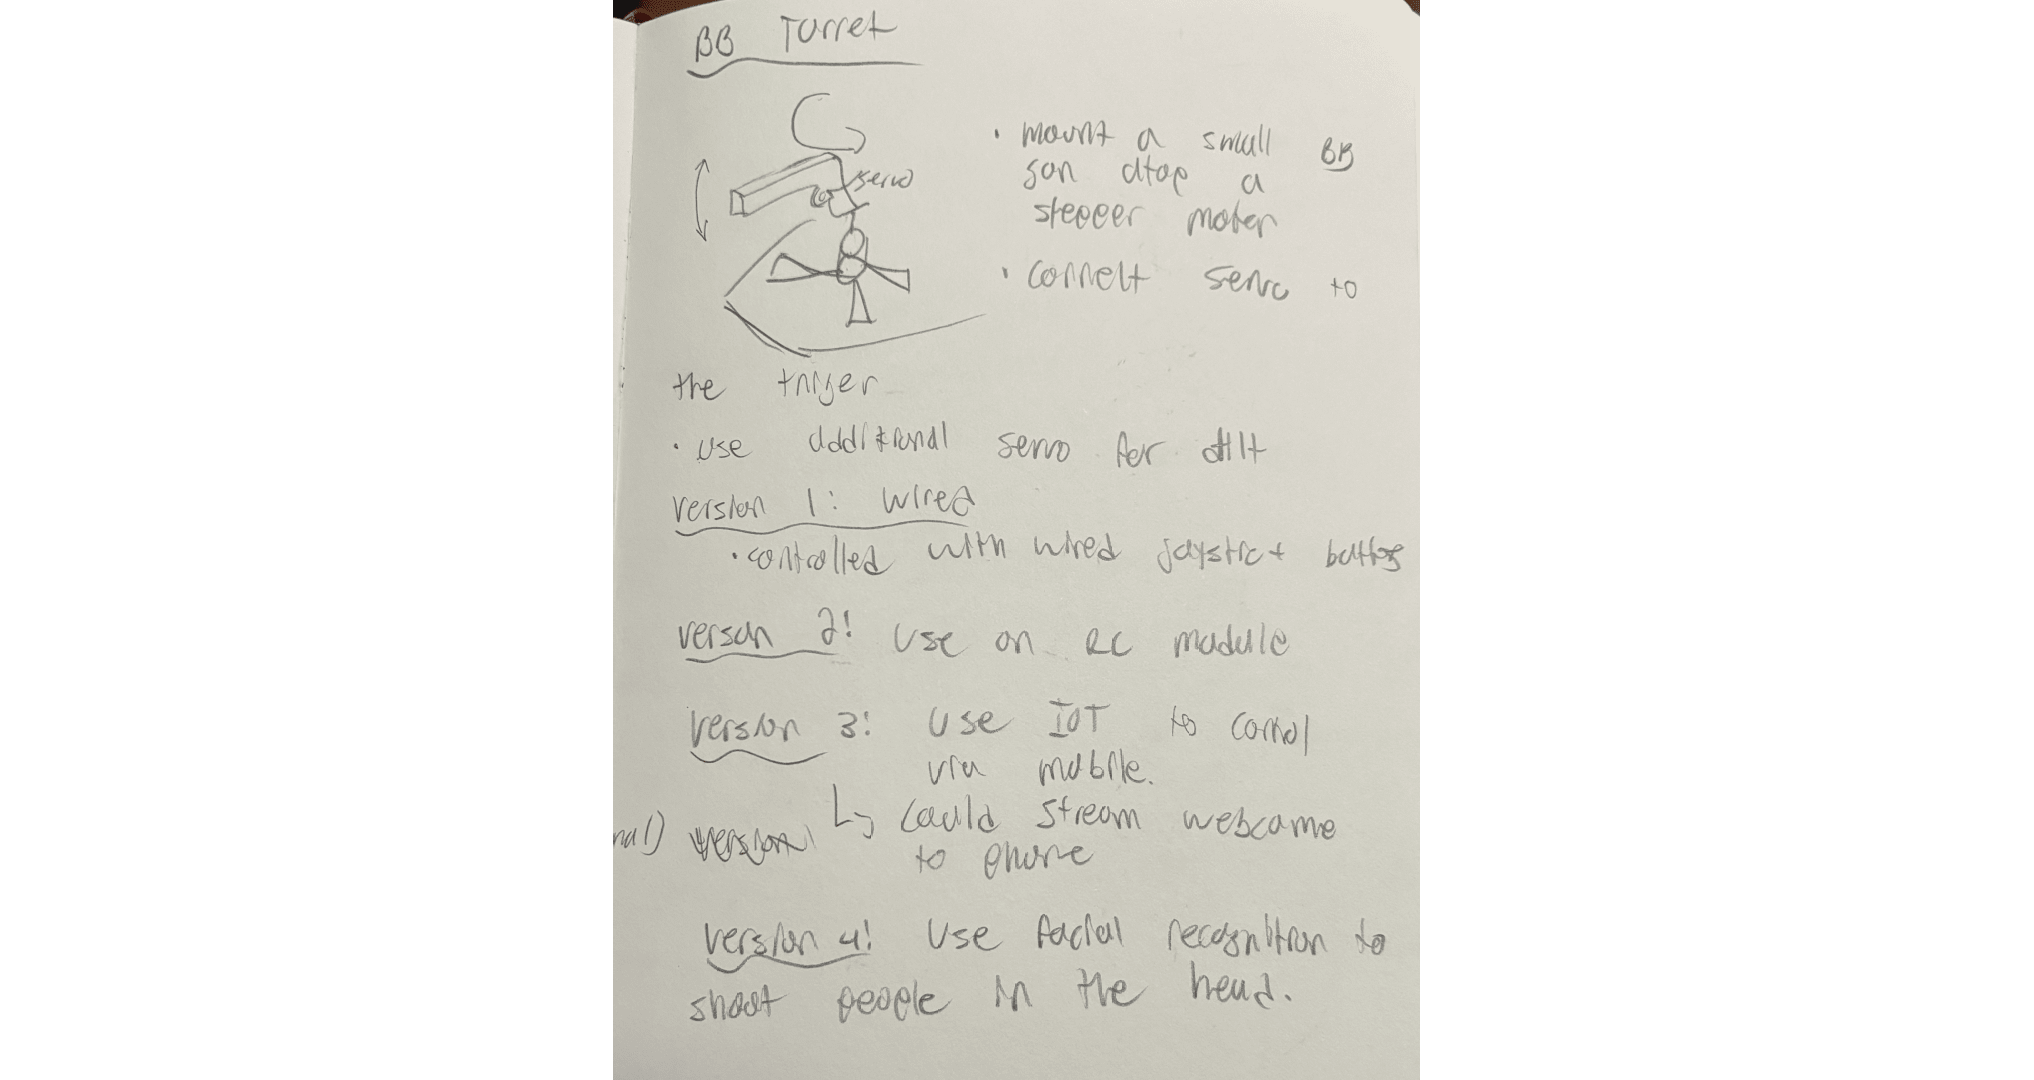 BB Turret
servo
• mount a small BB
gun atop a
stepper motor
• connect servo to
the triger
• use additional servo for tilt
version 1: wired
• controlled with wired joystick + buttons
version 2: Use an RC module
version 3: Use IOT to control
via mobile.
↳ Could stream webcame
nal) version
to phone
version 4: Use facial recognition to
shoot people in the head.